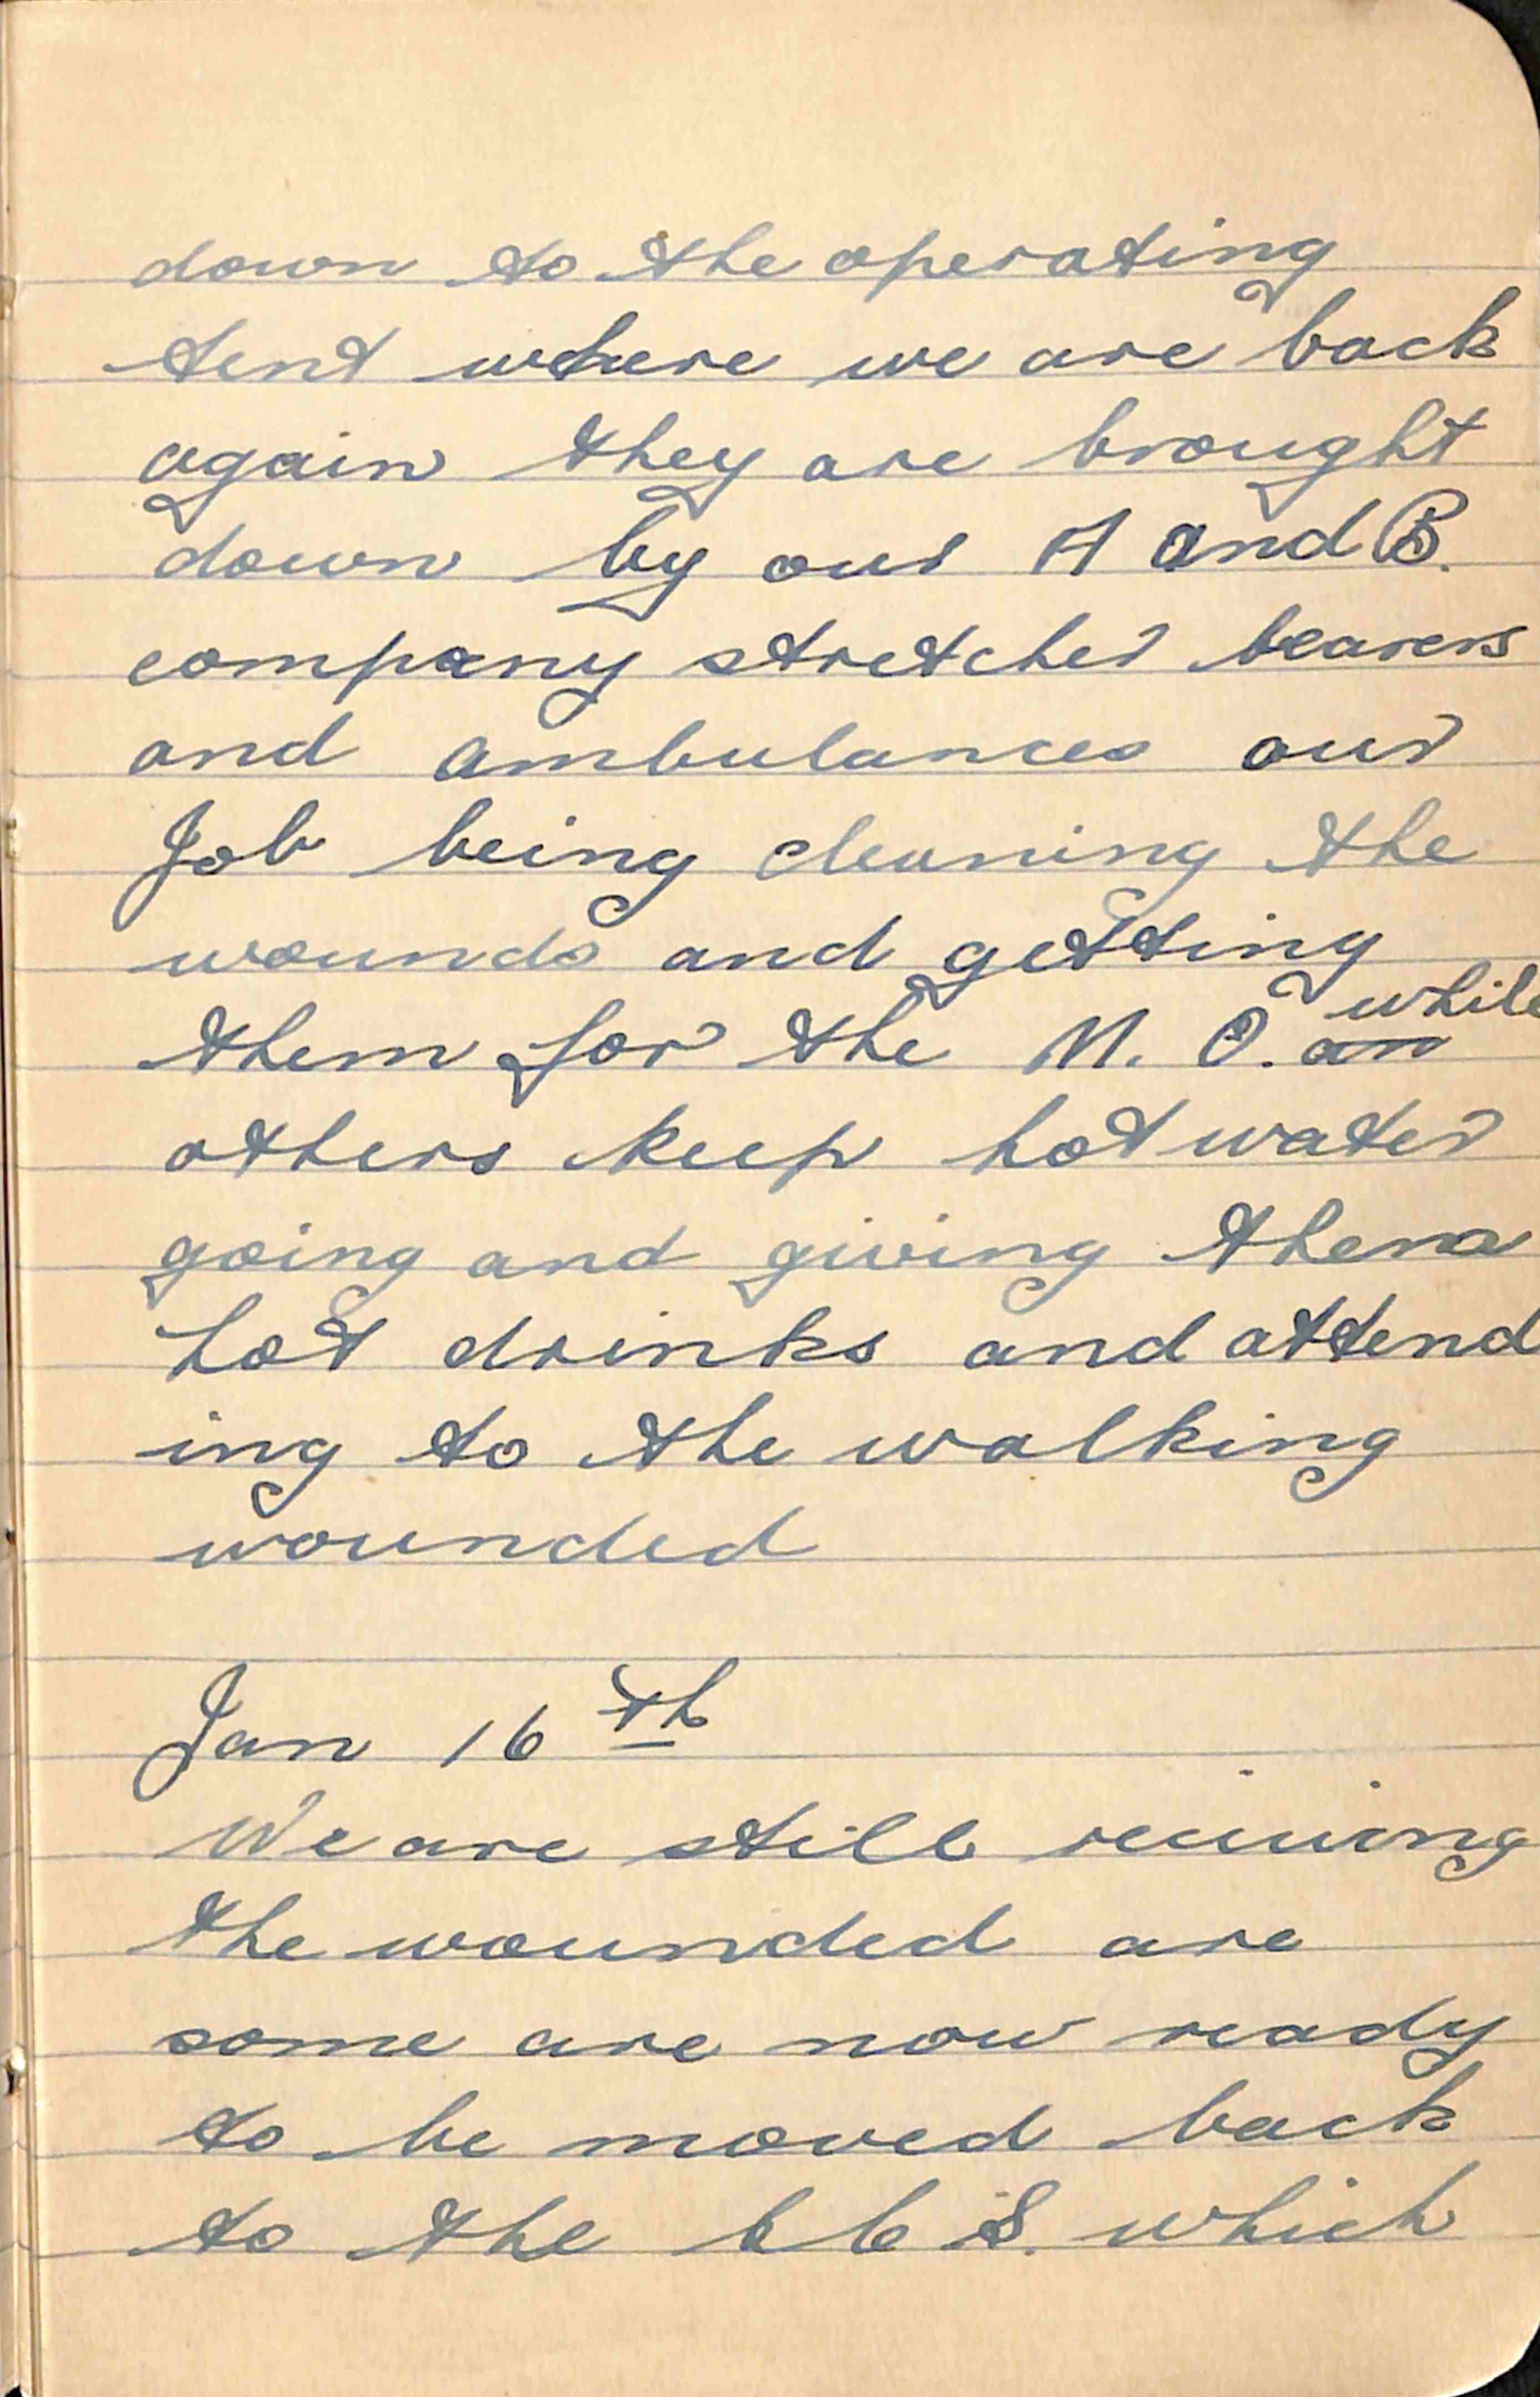 down to the operating
tent where we are back
again they are brought
down by our A and B.
company stretcher bearers
and ambulances our
Job being cleaning the
wounds and getting
them for the M. O. an while
others keep hot water
going and giving them
hot drinks and attend
ing to the walking
wounded
Jan 16th
We are still reciving
the wounded are
some are now ready
to be moved back
to the C C S. which